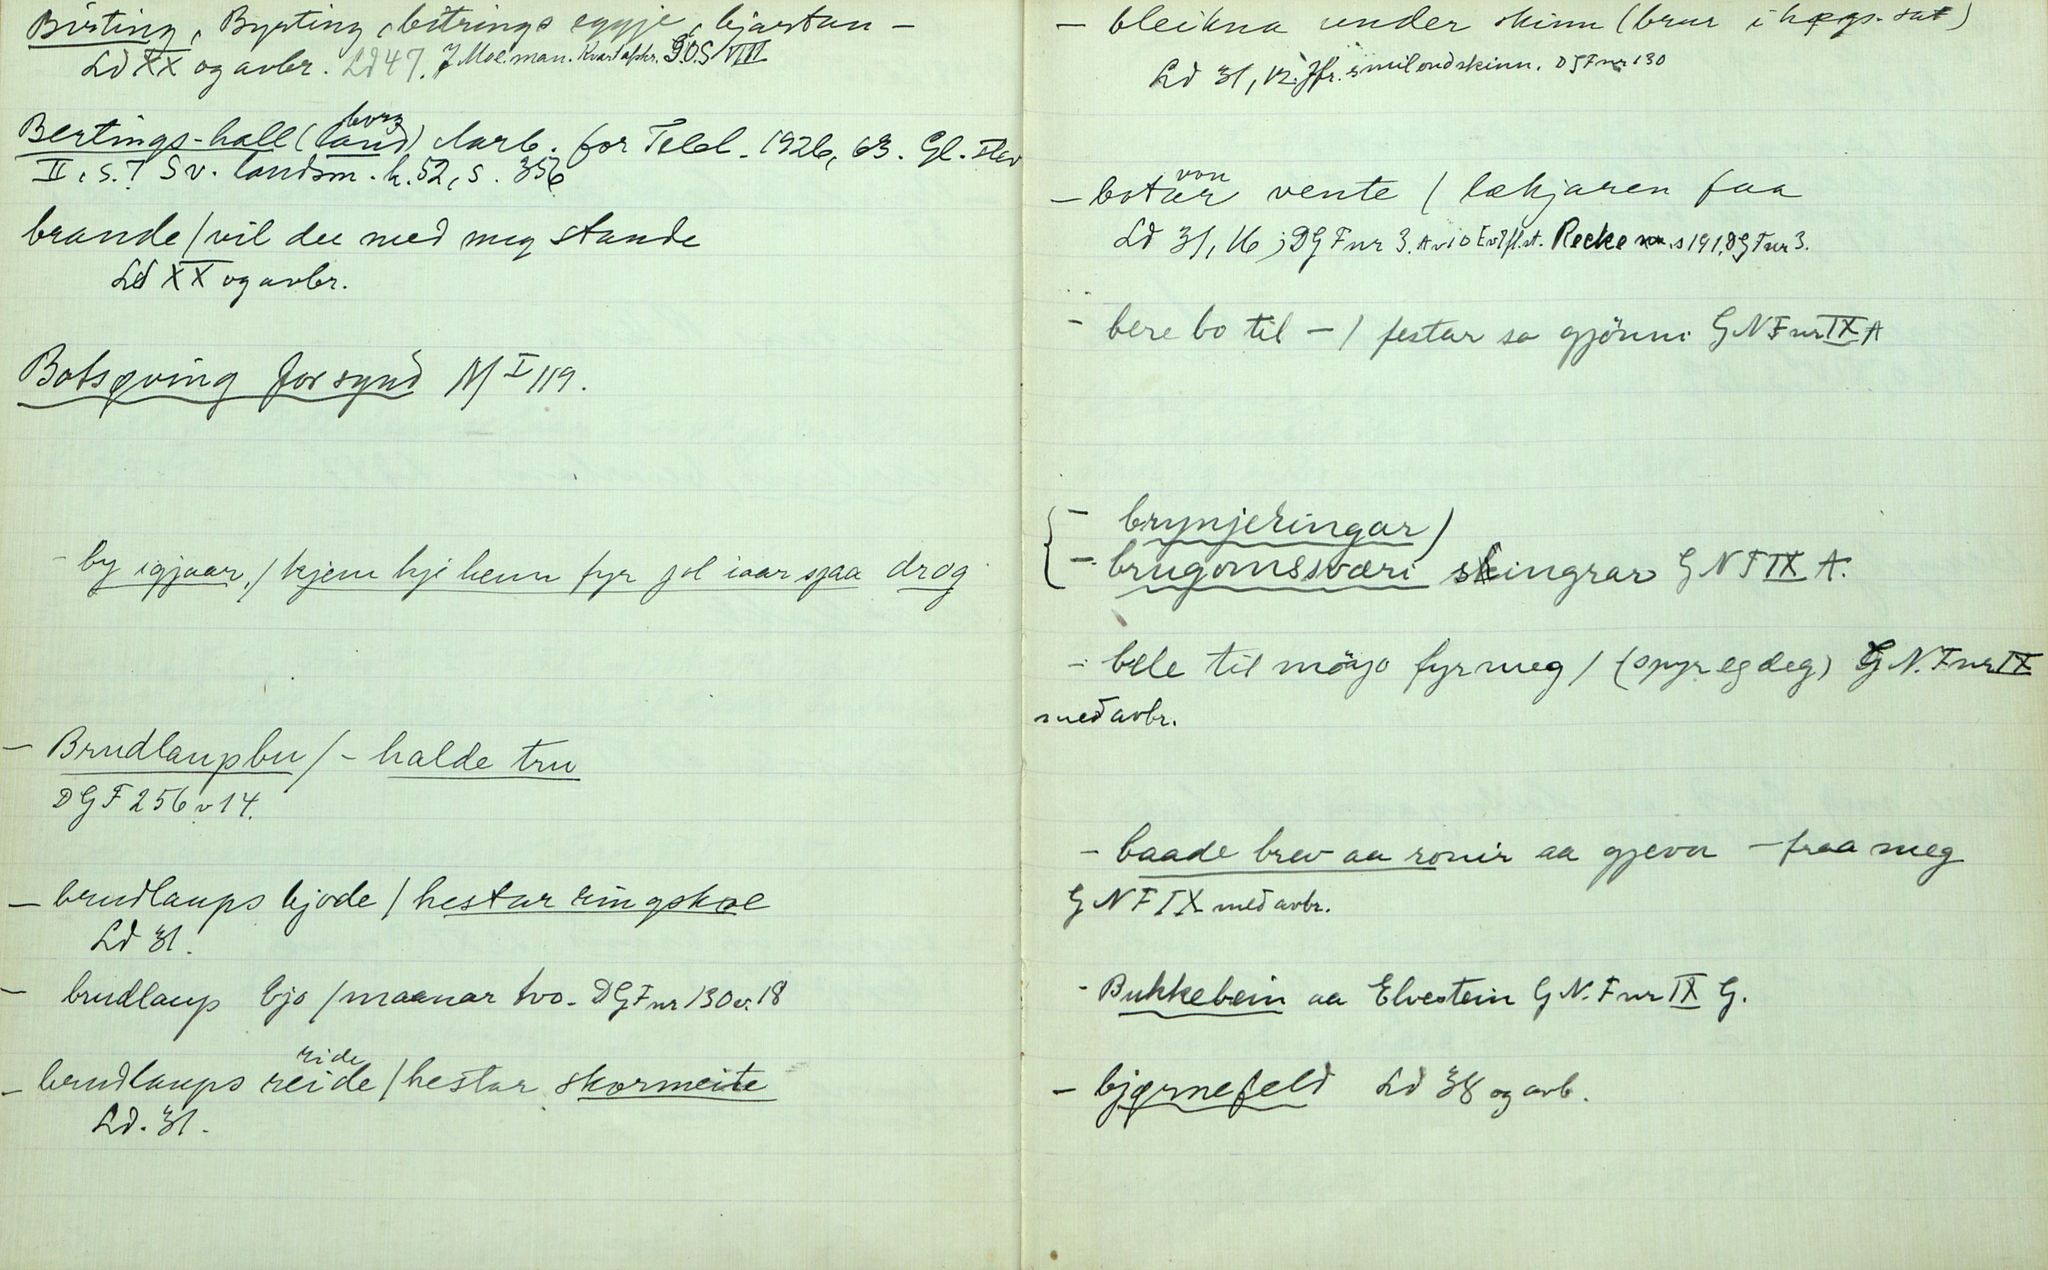 Birting, Byrting, bitrings eggje, hjartan –
Ld XX og avbr. Ld 47. J Moe. man. Kvartafskr. S.O.S VIII
Bertings-hall (land) borg Aarb. for Telel. 1926, 63. Gl.
II, s. 7 Sv. landsm. h. 52, s. 356
brande / vil du med meg stande
Ld XX og avbr.
Botsøving for synd M I 119.
– by igjaar, / kjem hji henn fyr jol iaar spaa drog
– Brudlaupbu / – halde tru
DGF 256 v 14.
– brudlaups bjode / hestar ringskoe
Ld 31.
– brudlaup bjo / maanar tvo. DGF nr 130 v. 18
– brudlaups reide ride / hestar skormeite
Ld. 31.
– bleikna under skinn (brur i høgs. sat)
Ld 31, 12. Jfr. smil ond skinn. DGF nr 130
– botar von vente / lækjaren faa
Ld 31, 16; DGF nr 3. A v 10 Recke s 191, DGF nr 3.
– bere bo til – / festar so gjönni GNF nr IX A
– brynjeringar /
– brugomssværi skingrar GNF IX A.
– bele til möyo fyr meg / (spyr eg deg) GN.F nr IX
med avbr.
– baade brev aa ronir aa gjeva – fraa meg
GNF IX med avbr.
– Bukkebein aa Elvestein GN.F nr IX G.
– bjørnefeld Ld 38 og avb.